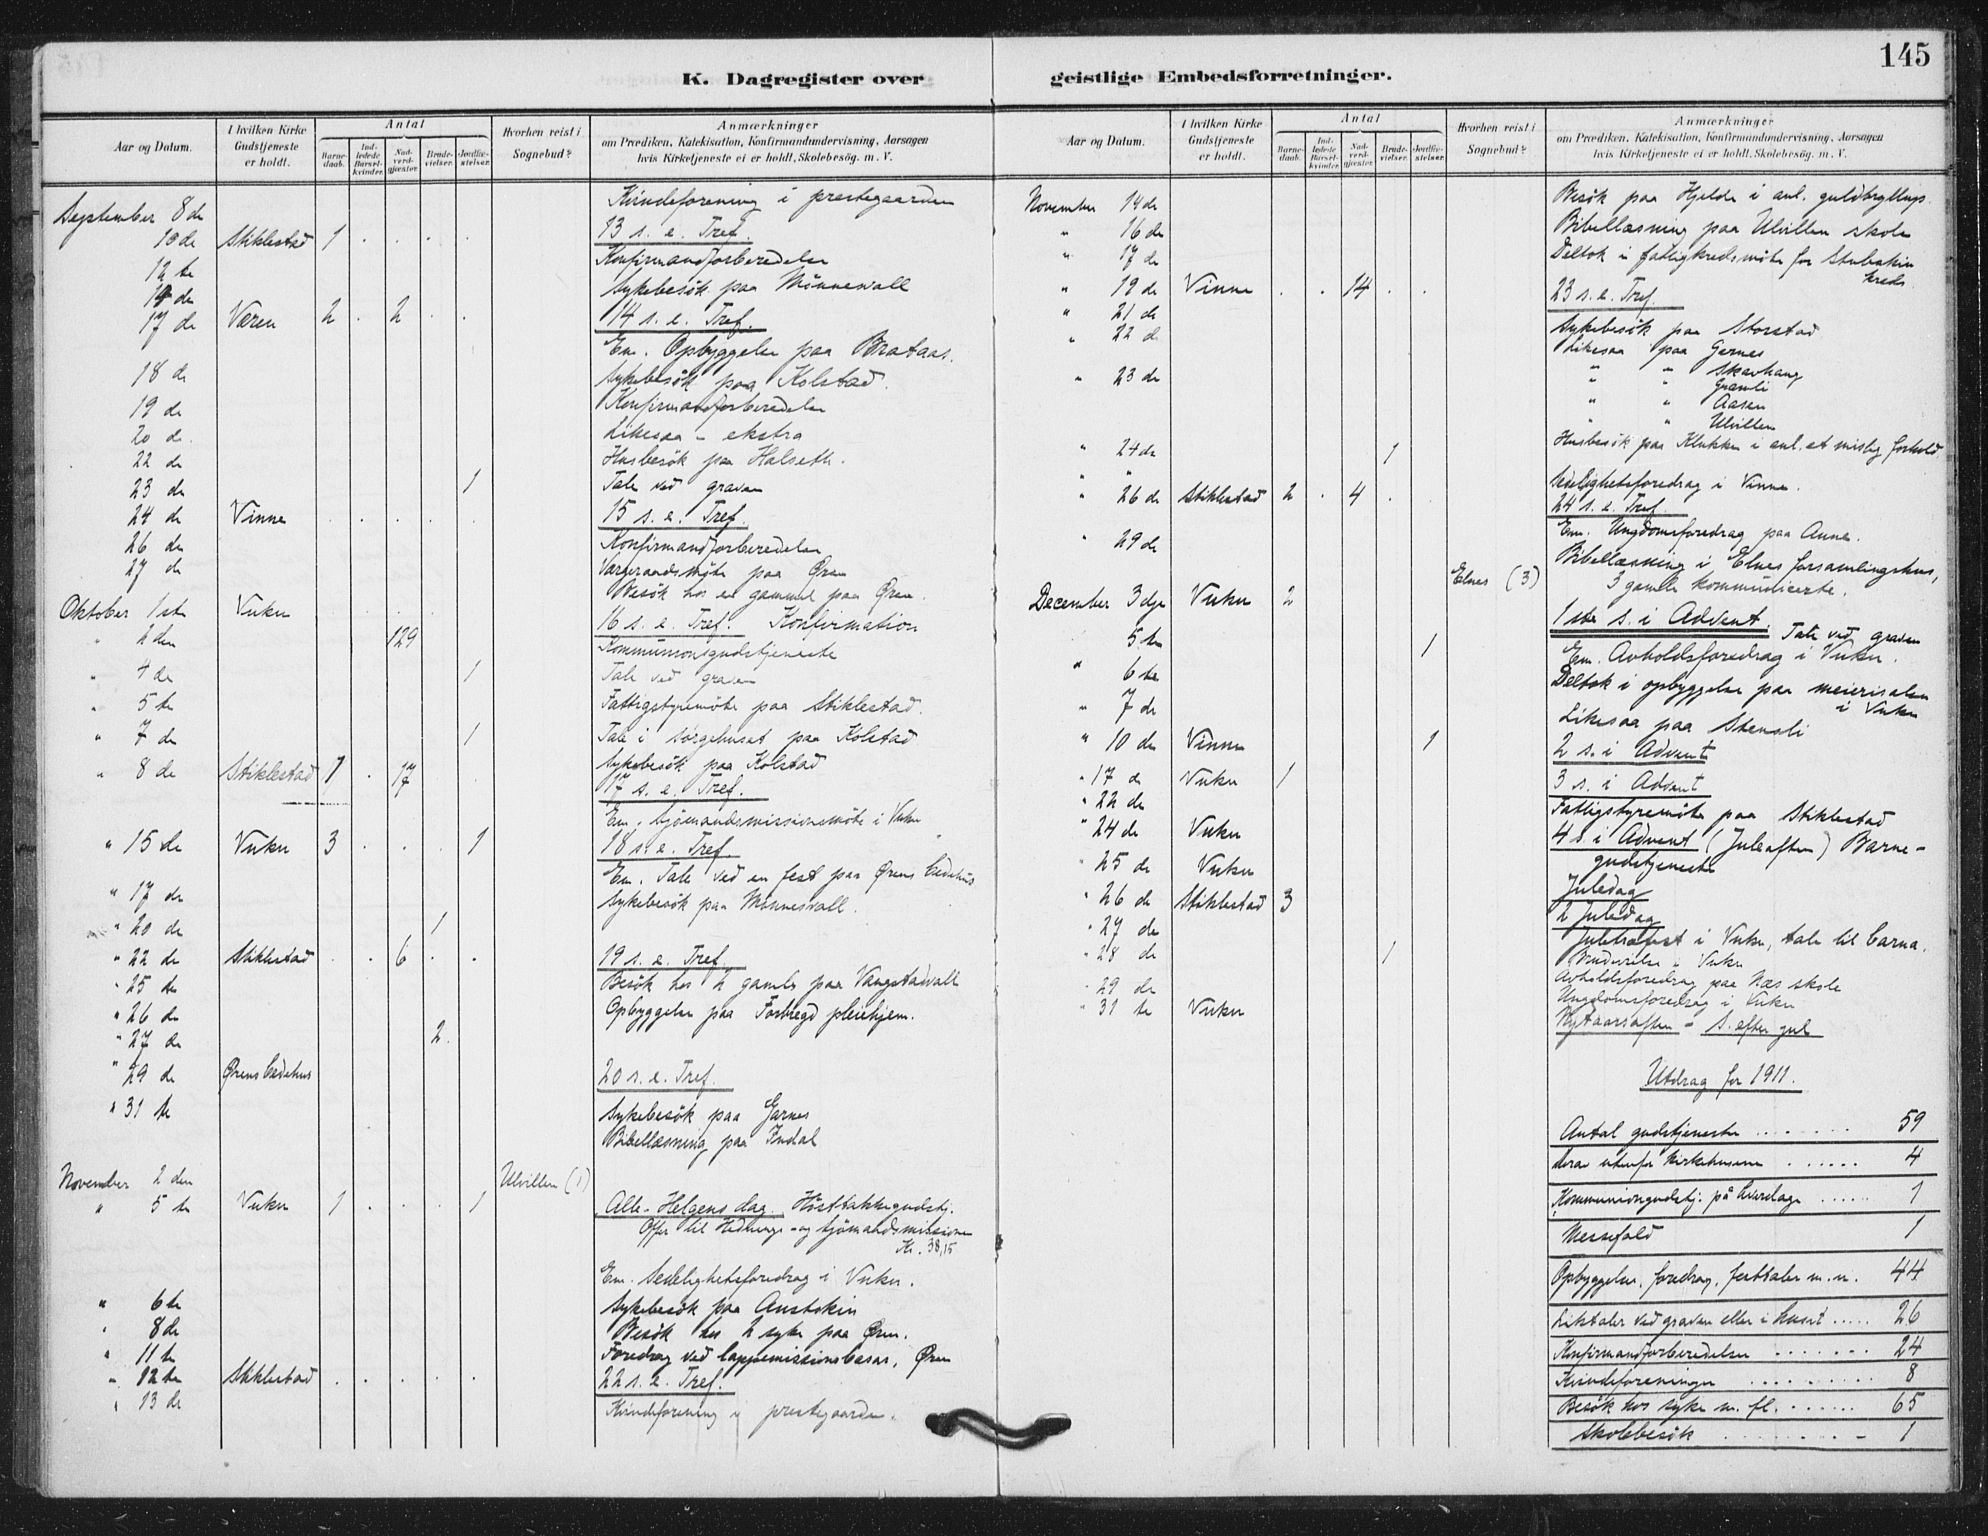 145
K. Dagregister over geistlige Embedsforretninger.
Aar og Datum. I hvilken Kirke Gudstjeneste er holdt. Antal Barnedaab. Indledede Barselkvinder. Nadverdgjæster. Brudevielser. Jordfæstelser. Hvorhen reist i Sognebud? Anmærkninger om Prædiken, Katekisation, Konfirmandundervisning, Aarsagen hvis Kirketjeneste ei er holdt, Skolebesøg. m. V.
September 8 de Kvindeforening i prestegaarden
10 de Stiklestad 1 . . . . 13 s. e. Tref.
12 te Konfirmandforberedelse
14 de Sykebesök paa Mönnesvall
17 de Væren 2 . 2 . . 14 s. e. Tref.
Em. Opbyggelse paa Brataas.
18 de Sykebesök paa Kolstad.
19 de Konfirmandforberedelse
20 de Likesaa - ekstra
22 de Husbesök paa Halseth.
23 de 1 Tale ved graven
24 de Vinne . . . . . 15 s. e. Tref.
26 de Konfirmandforberedelse
27 de Værgeraadsmöte paa Øren
Besök hos en gammel paa Øren.
Oktober 1ste Vuku . . . . 16 s. e. Tref. Konfirmation
" 2 den 129 Kommunionsgudstjeneste
" 4 de 1 Tale ved graven
" 5 te Fattigstyremöte paa Stiklestad.
" 7 de 1 Tale i sørgehuset paa Kolstad
Sykebesök paa Kolstad
" 8 de Stiklestad 1 . 17 . . 17 s. e. Tref.
Em. Sjömandsmissionsmöte i Vuku
" 15 de Vuku 3 . . . 1 18 s. e. Tref.
Em. Tale ved en fest paa Ørens bedehus
" 17 de Sykebesök paa Mönnesvall.
" 20 de 1
" 22 de Stiklestad . . 6 . . 19 s. e. Tref.
" 25 de Besök hos 2 gamle paa Vangstadvall
" 26 de Opbyggelse paa Forbregd pleiehjem.
" 27 de 2.
" 29 de Ørens bedehus 20 s. e. Tref.
" 31 te Sykebesök paa Garnes
Bibellæsning paa Indal
November 2 den Ulvillen (1)
" 5 te Vuku 1 . . . 1 Alle-Helgens dag. Hösttakkegudstj.
Offer til Hedninge- og Sjömandsmissionen
Kr. 38,15
Em. Sedelighetsforedrag i Vuku.
" 6 te Sykebesök paa Austskin
" 8 de Besök hos 2 syke paa Øren.
" 11 te Foredrag ved lappemissionsbasar, Øren
" 12 te Stiklestad . . . . . 22 s. e. Tref.
" 13 de Kvindeforening i prestegaarden.
Aar og Datum. I hvilken Kirke Gudstjeneste er holdt. Antal Barnedaab. Indledede Barselkvinder. Nadverdgjæster. Brudevielser. Jordfæstelser. Hvorhen reist i Sognebud? Anmærkninger om Prædiken, Katekisation, Konfirmandundervisning, Aarsagen hvis Kirketjeneste ei er holdt, Skolebesøg. m. V.
November 14 de Besök paa Hjelde i anl. guldbryllup.
" 16 de Bibellæsning paa Ulvillen skole
" 17 de Deltok i fattigkredsmöte for Stubskin
kreds.
" 19 de Vinne . . 14 . . 23 s. e. Tref.
" 21 de Sykebesök paa Storstad
" 22 de Likesaa paa Garnes
" " Skavhaug
" 23 de " " Gramli
" " Aasen
" " Ulvillen
" 24 de 1 Husbesök paa Klukken i anl. et mislig forhold
" Sedelighetsforedrag i Vinne.
" 26 de Stiklestad 2 . 4 . 24 s. e. Tref.
Em. Ungdomsforedrag paa Aunne.
" 29 de Elnes (3) Bibellæsning i Elnes forsamlingshus,
3 gamle kommunicerte.
December 3 dje Vuku 2 1ste s. i Advent.
5 te 1 Tale ved graven
Em. Avholdsforedrag i Vuku.
" 6 te Deltok i opbyggelse paa meierisalen
i Vuku
" 7 de Likesaa paa Stensli
" 10 de Vinne 1 2 s. i Advent
" 17 de Vuku 1 3 s. i Advent
" 22 de Fattigstyremöte paa Stiklestad
" 24 de Vuku 4 s. i Advent (Juleaften) Barne-
gudstjeneste
" 25 de Vuku Juledag
" 26 de Stiklestad 3 2 Juledag
" 27 de Juletræfest i Vuku, tale til barna.
" 28 de 1 Brudevielse i Vuku
Avholdsforedrag paa Næs skole
" 29 de Ungdomsforedrag i Vuku
" 31 te Vuku Nytaarsaften - S. efter jul
Utdrag for 1911.
Antal gudstjenester ........ 59
Derav utenfor Kirkehusene ...... 4
Kommuniongudstj. på hverdage ...... 1
Messefald 1
Opbyggelser, foredrag, festtaler m. m. 44
Liktaler ved graven eller i huset ..... 26
Konfirmandforberedelser ....... 24
Kvindeforeninger .......... 8
Besök hos syke m. fl. ....... 65
Skolebesök ........ 1